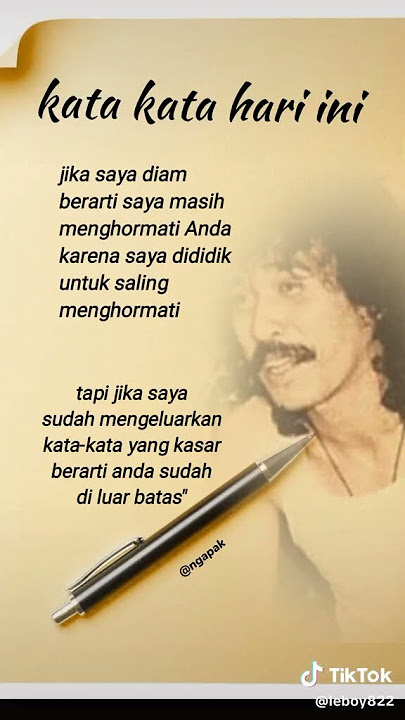 kata kata hari ini
jika saya diam
berarti saya masih
menghormati Anda
karena saya dididik
untuk saling
menghormati
tapi jika saya
sudah mengeluarkan
kata-kata yang kasar
berarti anda sudah
di luar batas"
@ngapak
TikTok
@leboy822